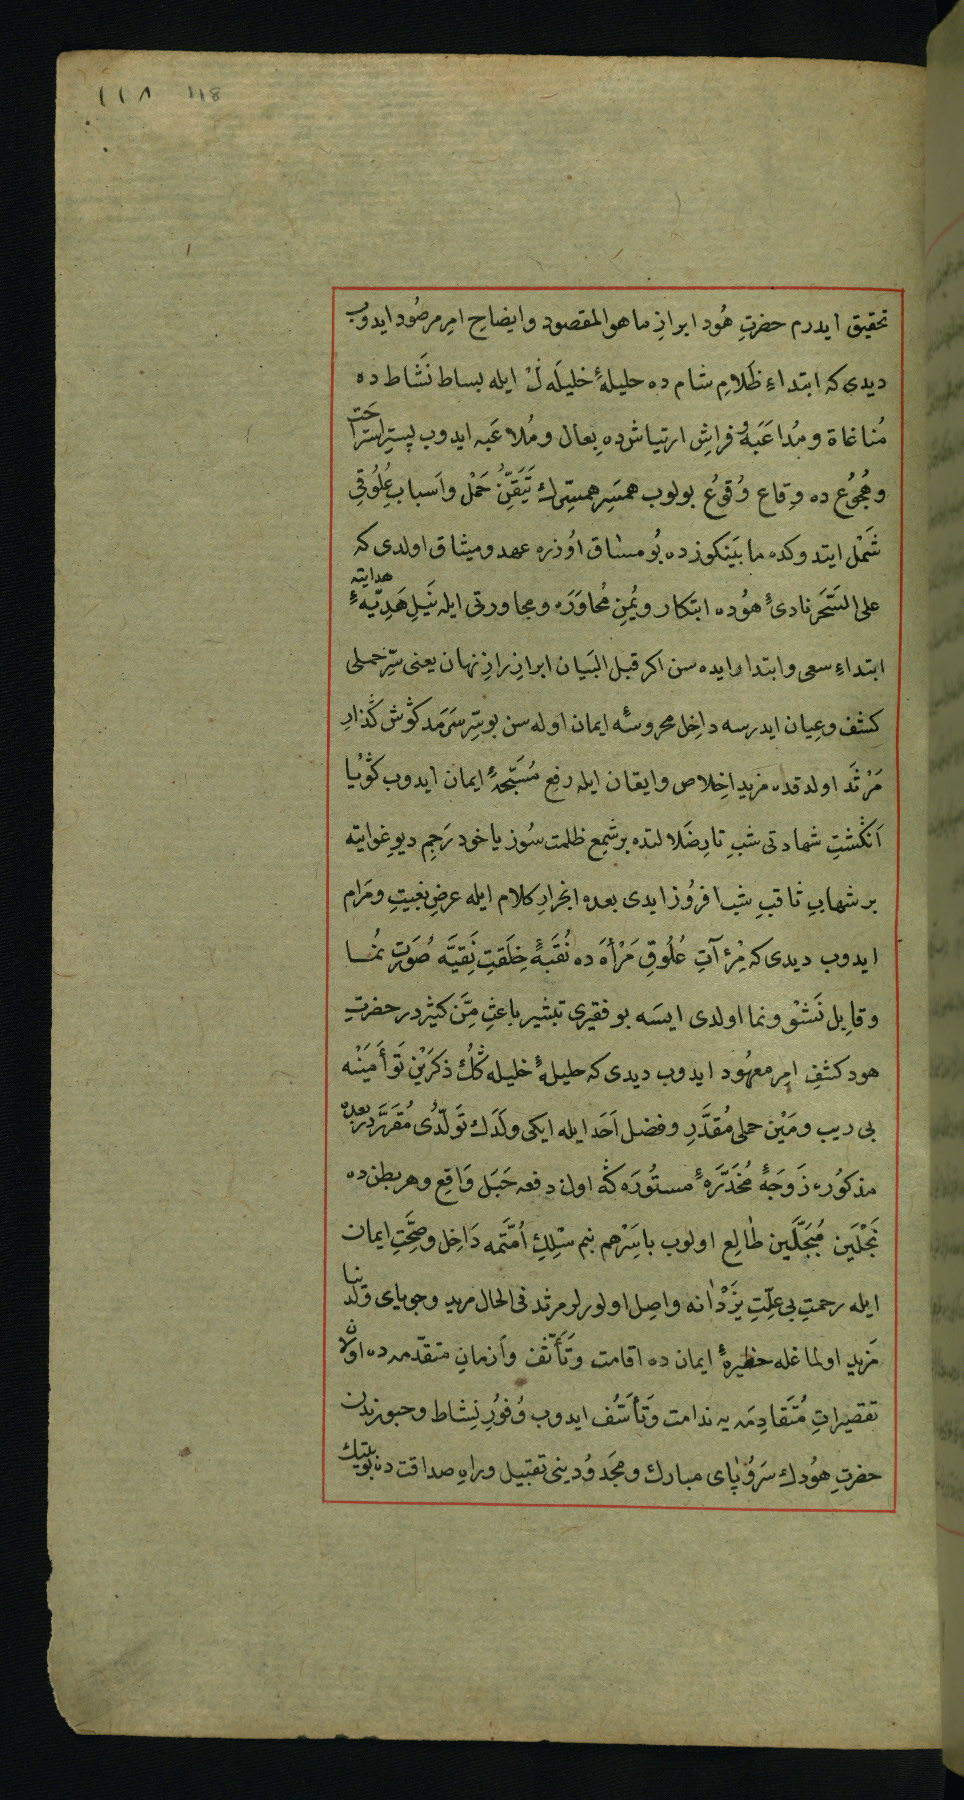 ١١٨ 118
تحقیق ایدرم حضرتِ هُود ابرازِ ماهو المقصود وایضاحِ امرِ مرصُود ایدوب
دیدی که ابتداءِ ظَلامِ شام ده حلیلهٔ خلیله‌ڭ ایله بساط نَشاط ده
مُناغاة ومُداعَبَه وُ فراشِ ارتیاش ده بِعال ومُلاعَبه ایدوب بِسترِ استراحَت
وهُجُوع ده وِقاع وُقُوع بولوب همسَرِ همسِرّك تَیَقُّنِ حَمْل واَسبابِ عُلُوقِی
شَمْل ایتدوکده مابَینكوزده بُو مساق اُوزره عهد ومیثاق اولدی که
علی السَّحَر نادیٔ هُوده ابتكار ویُمنِ مُحاوَرَه ومجاورتی ایله نَیلِ هَدِیّهٔ هدایته
ابتداءِ سعی وابتدار ایده سن اكر قبل البَیان ابرازِ رازِ نهان یعنی سِرِّ حملی
كشف وعِیان ایدرسه داخِل محروسهٔ ایمان اوله سن بو سِرِّ سَرمَد كوش كذارِ
مَرْثَد اولدقده مزیدِ اخِلاص وایقان ایله رفعِ مُسَبِّحهٔ ایمان ایدوب كُویا
اَنكشتِ شهادتی شبِ تارِ ضَلالتده بر شمعِ ظلمت سُوز یا خود رَجمِ دیوِ غوایته
بر شهابِ ثاقبِ شب افروُز ایدی بعده انجرارِ كلام ایله عرضِ بغیتِ ومَرام
ایدوب دیدی كه مِرْآتِ عُلُوقِ مَرْأَه ده نُقبَهٔ خِلَقتِ نَقِیَّه صُورت نُما
وقابِل نَشْو ونما اولدی ایسه بو فقیری تبشیر باعثِ مِنَنِ كثیر در حضرتِ
هود كشفِ امرِ معهُود ایدوب دیدی كه حلیلهٔ خلیله‌ڭُك ذكَرَیْن تَوأَمَینْه
بی ریب ومَیْن حملی مُقدَّر وفضل اَحَد ایله ایكی ولَدَك تَولُّدی مُقرَّر در بعده
مذكوُره زَوجهٔ مُخَدَّرهٔ مستُورَه كه اون دفعه حَبَل وَاقِع وهر بطن ده
نَجْلَین مُبَجَّلَین طالِع اولوب باسَرْهم بنم سِلكِ اُمَّتمه دَاخِل وصِحَّتِ ایمان
ایله رحمتِ بی عِلّتِ یَزْدانه واصِل اولورلر مرثد فی الحال مرید وجویای
مَزید اولماغله حظیرهٔ ایمان ده اقامت وَتَأَنُّف واَزمانِ متقدّمه ده اولان
تقصیراتِ مُتَقادِمَه یه ندامت وَتأَسُّف ایدوب وُفوُرِ نِشاط وحبورندن
حضرتِ هُودك سَرُوپای مبارك ومجَدوُدینی تقبیل وراهِ صداقت ده